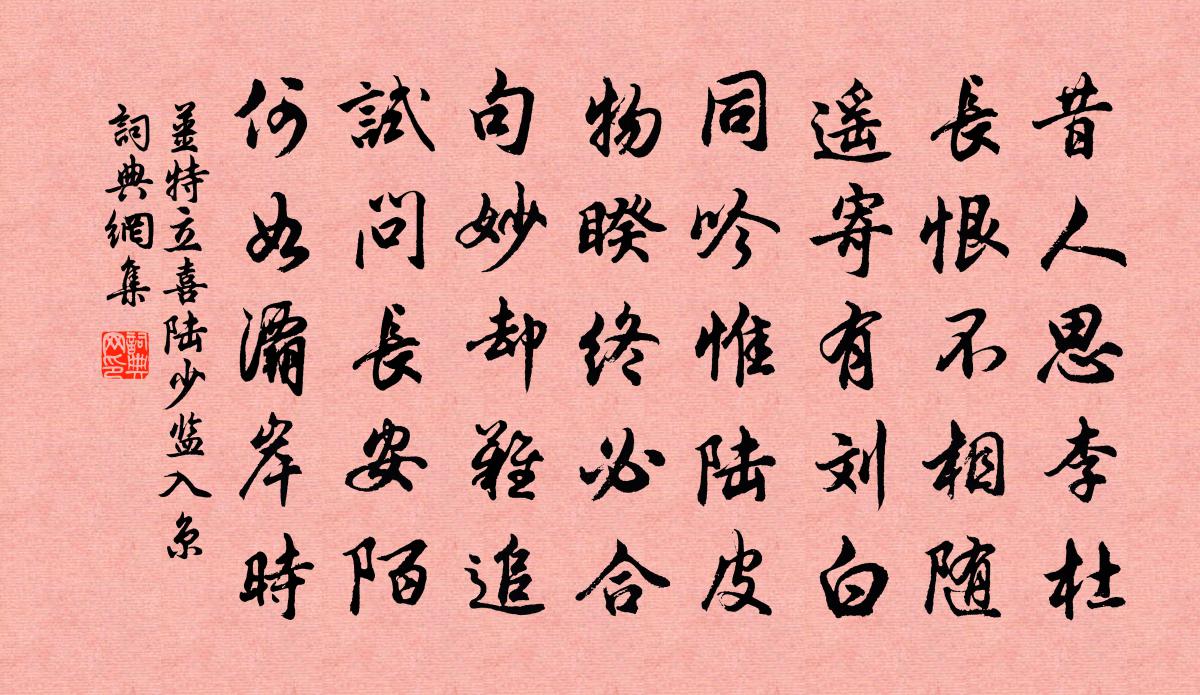 昔人思李杜
長恨不相随
遥寄有刘白
同吟惟陆皮
物睽终必合
句妙却難追
試问長安陌
何如灞岸時
姜特立喜陆少监入京
詞典網集
詞典网印